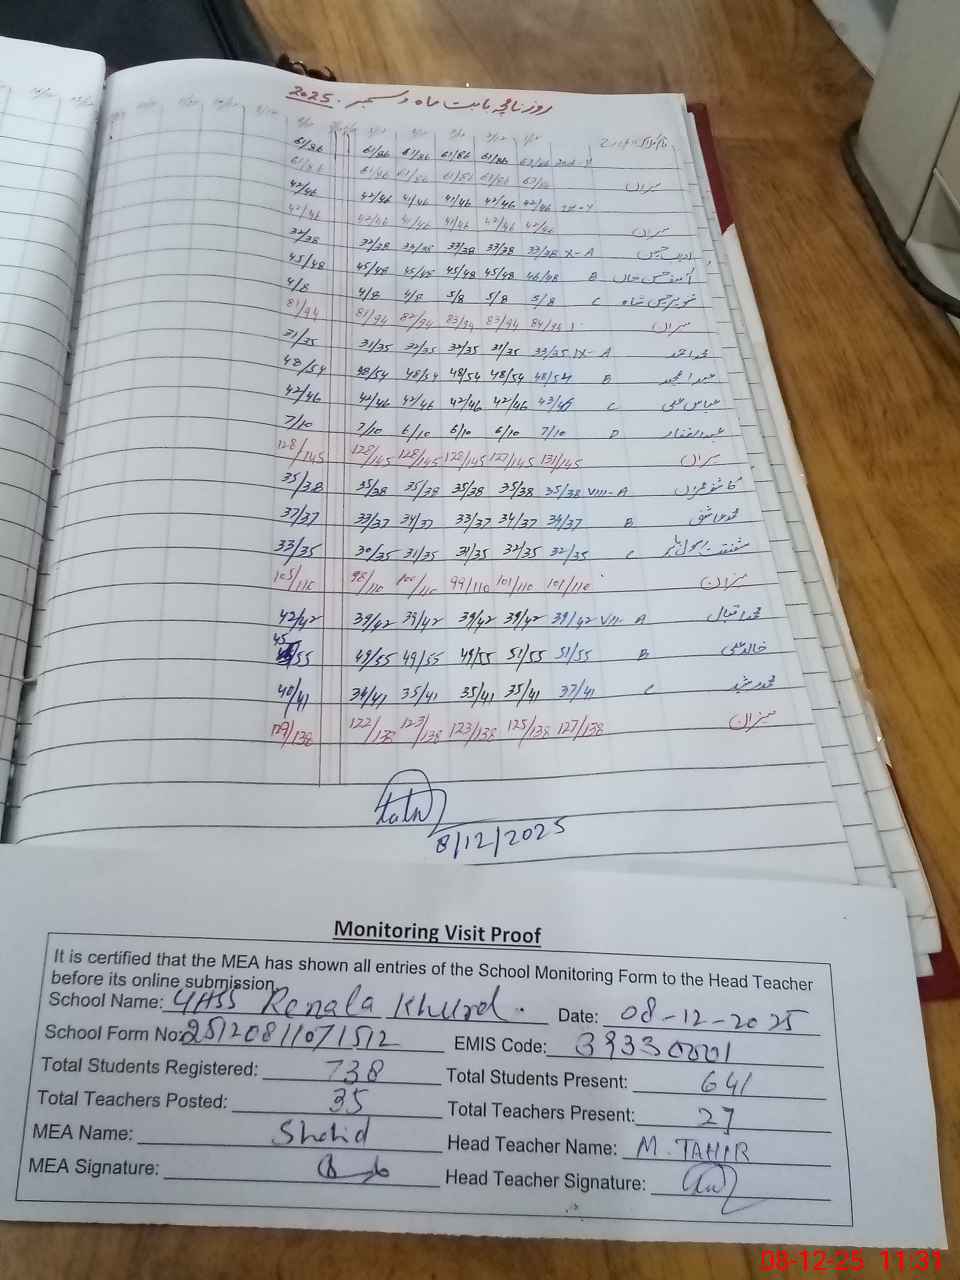 روزنامچہ بابت ماہ دسمبر 2025
61/86 61/86 61/86 61/86 61/86
61/86 61/86 61/86 61/86 میزان
42/46 42/46 41/46 41/46 42/46 42/46
42/46 42/46 41/46 41/46 42/46 42/46 میزان
32/38 32/38 33/38 33/38 33/38 X-A
45/48 45/48 45/48 45/48 45/48 46/48 B
4/8 4/8 4/8 5/8 5/8 5/8 C تنویر حسین شاہ
81/94 81/94 82/94 83/94 83/94 84/94 میزان
31/35 31/35 32/35 32/35 31/35 33/35 IX-A محمد احمد
48/54 48/54 48/54 48/54 48/54 48/54 B عبدالمجید
42/46 42/46 42/46 42/46 42/46 43/46 C عباس علی
7/10 7/10 6/10 6/10 6/10 7/10 D عبدالغفار
128/145 128/145 128/145 128/145 127/145 131/145 میزان
35/38 35/38 35/38 35/38 35/38 35/38 VIII-A
37/37 33/37 34/37 33/37 34/37 34/37 B محمد عاشق
33/35 30/35 31/35 31/35 32/35 32/35 C
105/110 98/110 100/110 99/110 101/110 101/110 میزان
42/42 39/42 39/42 39/42 39/42 39/42 VII- A محمد اقبال
45/55 49/55 49/55 49/55 51/55 51/55 B خالد علی
40/41 34/41 35/41 35/41 35/41 37/41 C محمد رشید
129/138 122/138 123/138 123/138 125/138 127/138 میزان
8/12/2025
Monitoring Visit Proof
It is certified that the MEA has shown all entries of the School Monitoring Form to the Head Teacher
before its online submission
School Name: GHSS Renala Khurd. Date: 08-12-2025
School Form No: 25120811071512 EMIS Code: 39330001
Total Students Registered: 738 Total Students Present: 641
Total Teachers Posted: 35 Total Teachers Present: 27
MEA Name: Shahid Head Teacher Name: M. TAHIR
MEA Signature: Head Teacher Signature:
08-12-25 11:31